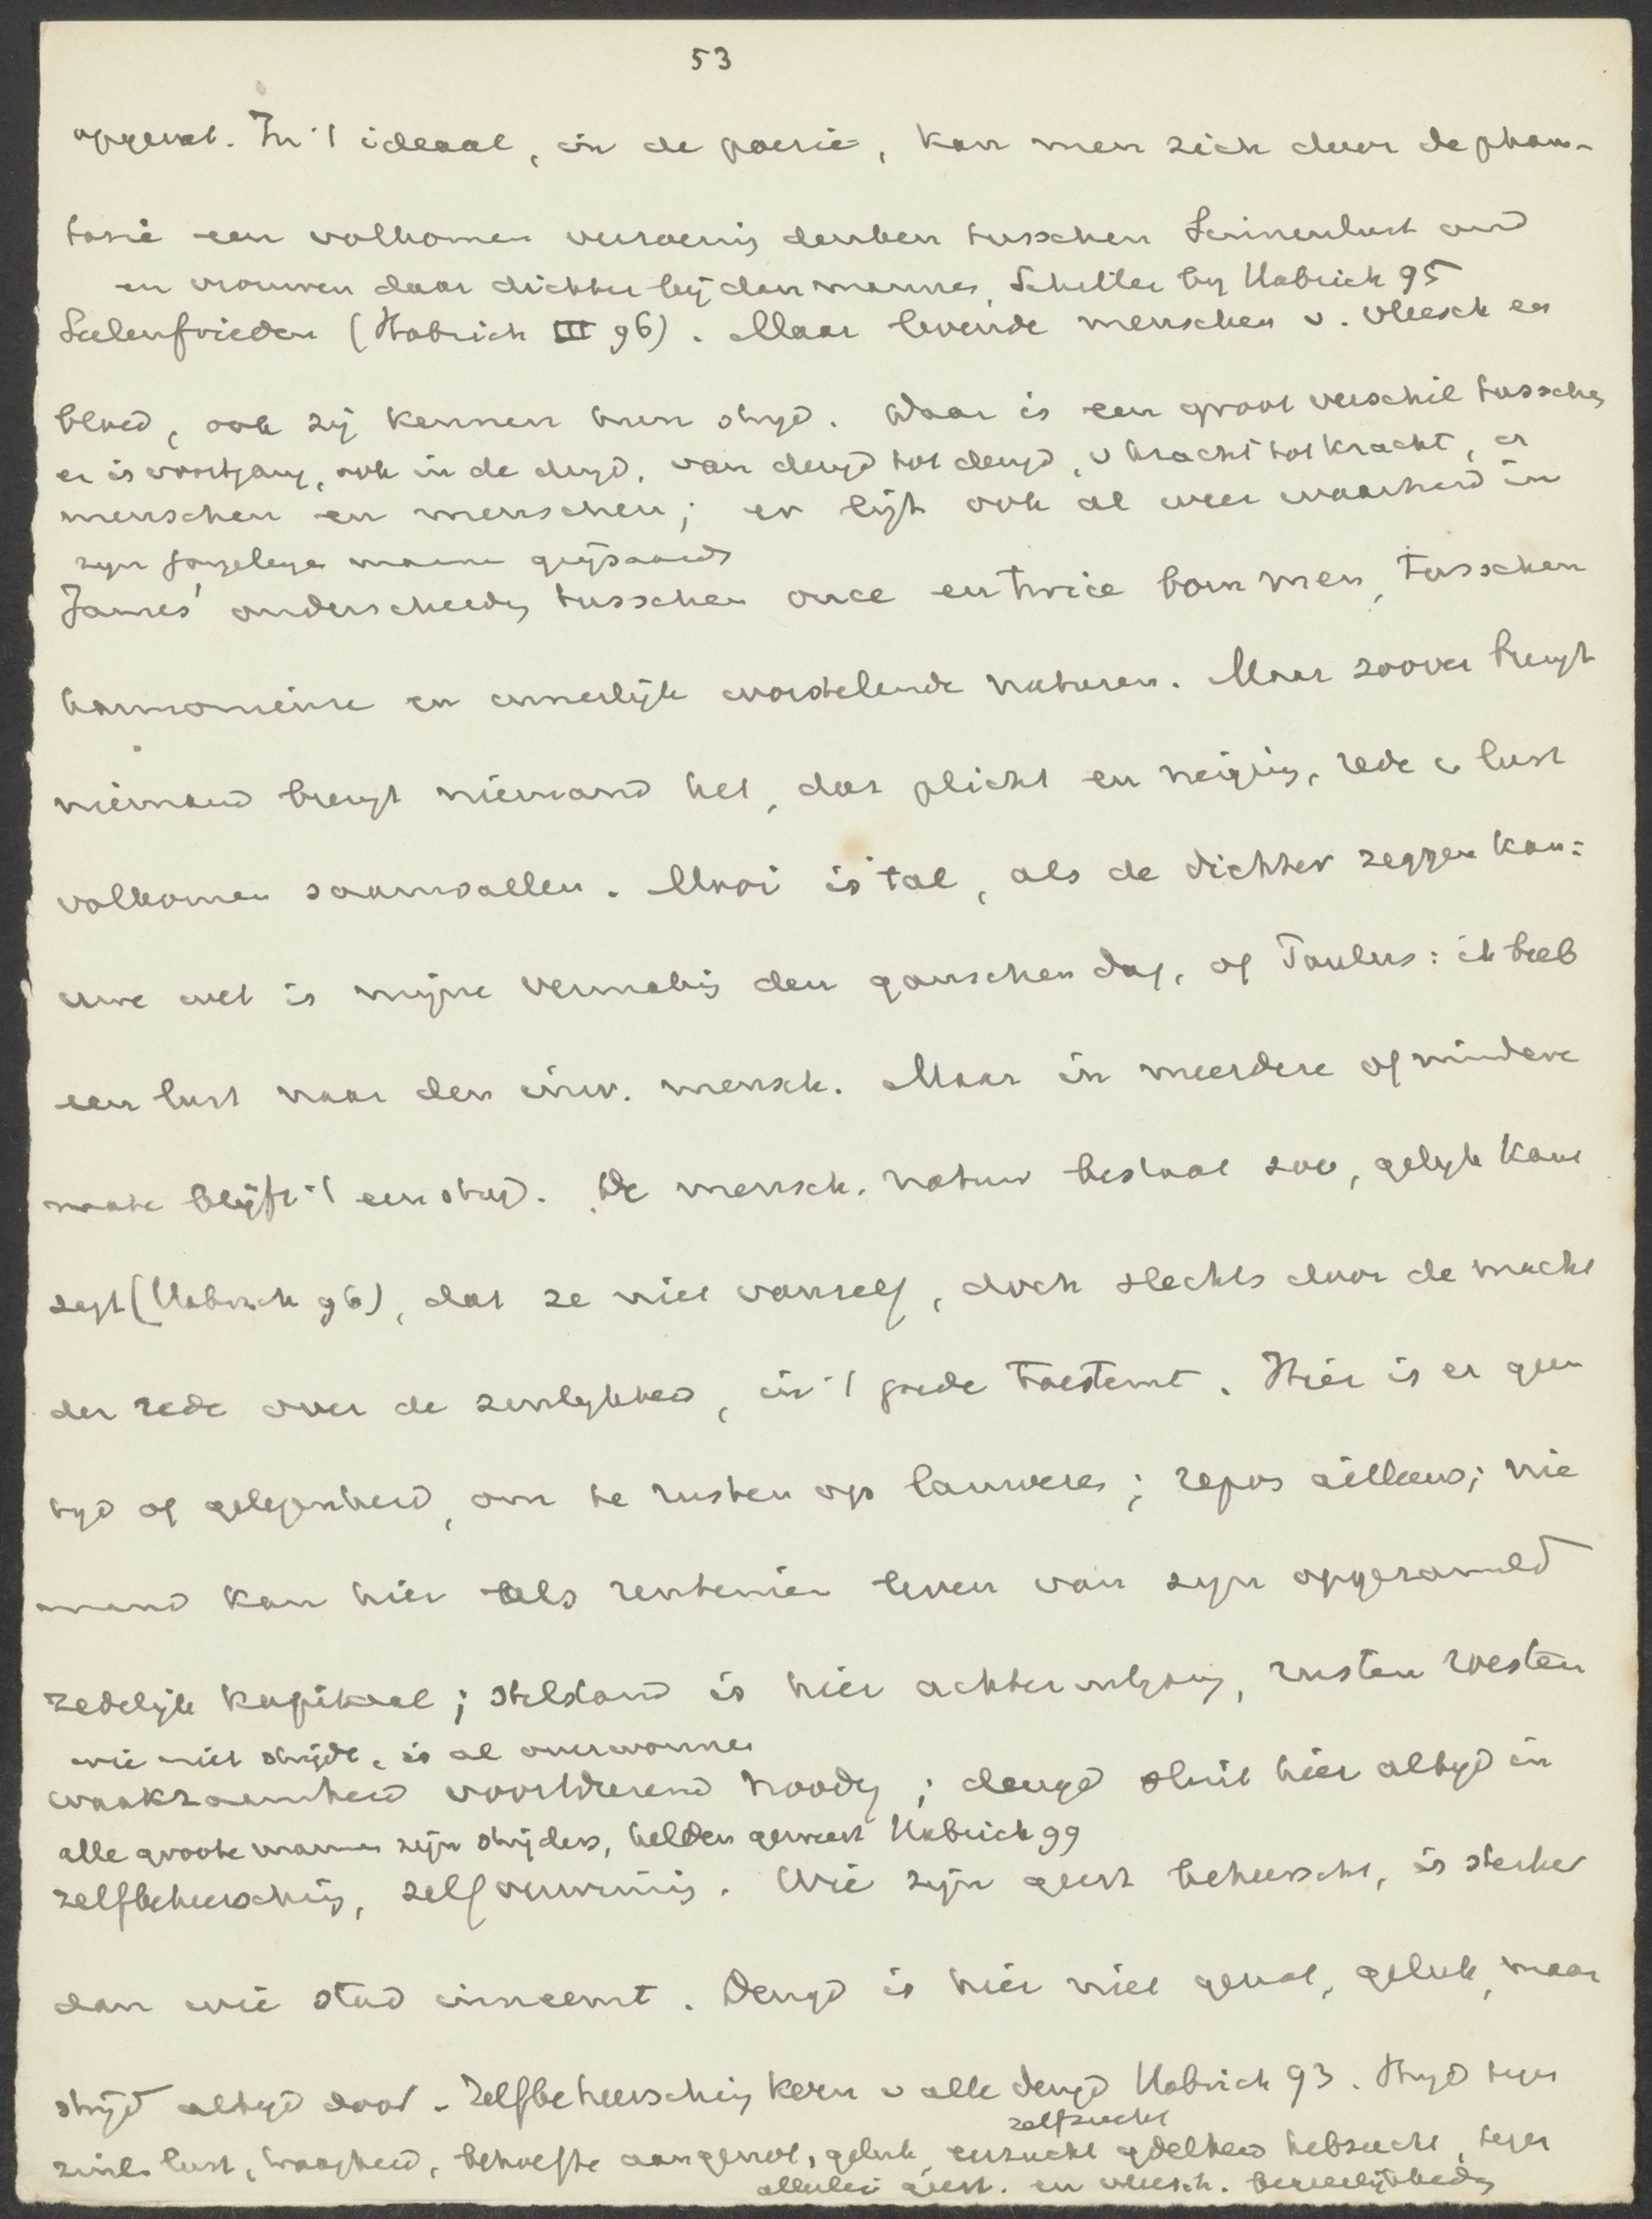 53
opgevat. In 't ideaal, in de poezie, kan men zich door de phan-
tasie een volkomen verzoening denken tusschen Sinnenlust und
en vrouwen daar dichter bij dan mannen, Schiller by Habrich 95
Seelenfrieden (Habrich III 96). Maar levende menschen v. vleesch en
bloed, ook zij kennen hun stryd. Daar is een groot verschil tusschen
er is voortgang, ook in de deugd, van deugd tot deugd, v kracht tot kracht, er
menschen en menschen; er ligt ook al weer waarheid in
zyn grijsaards
James' onderscheidg tusschen once en twice born men, tusschen
harmonieuse en innerlijk worstelende naturen. Maar zoover brengt
niemand brengt niemand het, dat plicht en neiging, rede en lust
volkomen saamvallen. Mooi is 't al, als de dichter zeggen kan:
uwe wet is mijne vermakg den ganschen dag, of Paulus: ik heb
een lust naar den inw. mensch. Maar in meerdere of mindere
mate blijft 't een stryd. De mensch. natuur bestaat zoo, gelyk Kant
zegt (Habrich 96), dat ze niet vanzelf, doch slechts door de macht
der rede over de zinlykheid, in 't goede toestemt. Hier is er geen
tyd of gelegenheid, om te rusten op lauweren; repos ailleurs; nie
mand kan hier als rentenier leven van zyn opgezameld
zedelijk kapitaal; stilstand is hier achteruitgang, rusten roesten
wie niet strijdt, is al overwonnen
waakzaamheid voortdurend noodig; deugd sluit hier altyd in
alle groote mannen zijn strijders, helden geweest Habrich 99
zelfbeheersching, zelfverwinning. Wie zijn geest beheerscht, is sterker
dan wie stad inneemt. Deugd is hier niet genot, geluk, maar
strijd altyd door. Zelfbeheersching kern v alle deugd Habrich 93. Stryd tegen
zelfzucht
zinl. lust, traagheid, behoefte aan genot, geluk, eerzucht ydelheid hebzucht, tegen
allerlei geest. en vleesch. begeerlijkheden